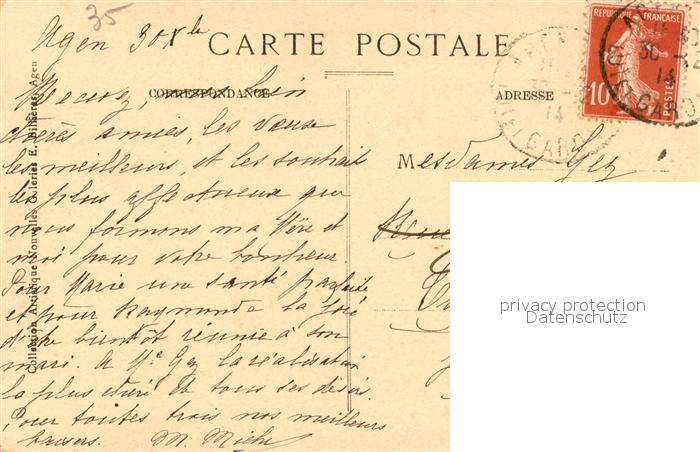 35
Agen 30 Xbre
CARTE POSTALE
CORRESPONDANCE
ADRESSE
REPUBLIQUE FRANÇAISE
10
POSTES
30 - 12
14
GARONNE
Collection Artistique Nouvelles Galeries E. Agen
Recevez, bien
chères amies, les vœux
les meilleurs, et les souhaits
les plus affectueux que
nous formons ma Mère et
moi pour votre bonheur.
Pour Marie une santé parfaite
et pour Raymonde la joie
d'être bientôt réunie à son
mari. A Me Gez la réalisation
la plus entière de tous ses désirs.
Pour toutes trois nos meilleurs
baisers. M. Miche
Mesdames Gez
privacy protection
Datenschutz